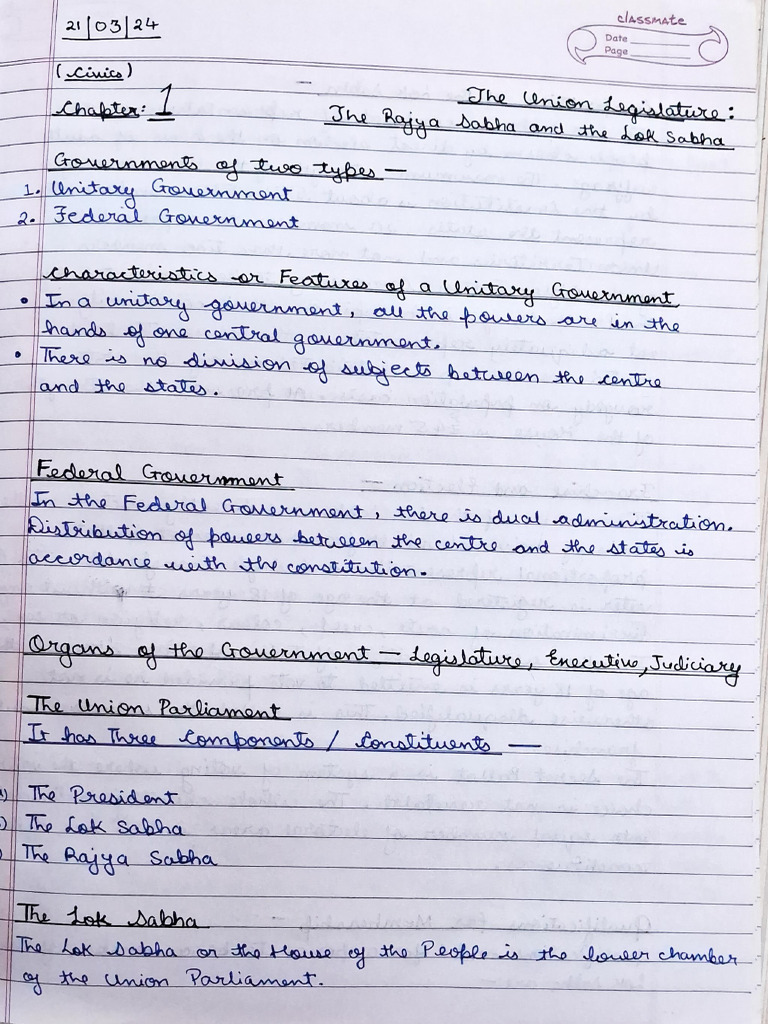 21/03/24
classmate
Date
Page
(Civics)
Chapter: 1
The Union Legislature:
The Rajya Sabha and the Lok Sabha
Governments of two types —
1. Unitary Government
2. Federal Government
Characteristics or Features of a Unitary Government
• In a unitary government, all the powers are in the
hands of one central government.
• There is no division of subjects between the centre
and the states.
Federal Government
In the Federal Government, there is dual administration.
Distribution of powers between the centre and the states is
accordance with the constitution.
Organs of the Government — Legislature, Executive, Judiciary
The Union Parliament
It has Three Components / Constituents —
) The President
) The Lok Sabha
) The Rajya Sabha
The Lok Sabha
The Lok Sabha or the House of the People is the lower chamber
of the Union Parliament.